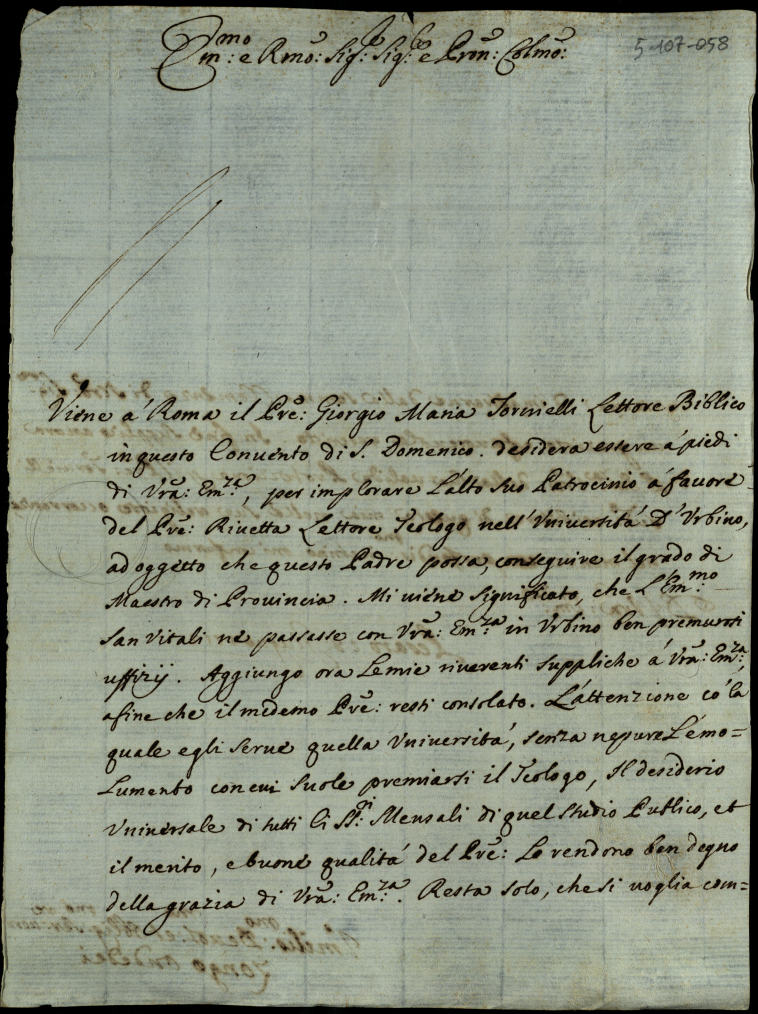 5-107-058
Em:mo e Rmo: Sig:r Sig:r e Pron: Colmo:
Viene a' Roma il Pre: Giorgio Maria Tornielli Lettore Biblico
in questo Convento di S. Domenico. desidera essere a' piedi
di Vra: Em:za, per implorare L'alto suo Patrocinio a' favore
del Pre: Rivetta Lettore Teologo nell'Vniversitá D'Vrbino,
ad oggetto che questo Padre possa, conseguire il grado di
Maestro di Provincia. Mi viene significato, che L'Em:mo
San Vitali ne passasse con Vra: Em:za in Vrbino ben premurosi
uffizij. Aggiungo ora Le mie riverenti suppliche á Vra: Em:za,
afine che il medemo Pre: resti consolato. L'attenzione có la
quale egli serve quella Vniversitá, senza nepure L'émo=
Lumento con cui suole premiarsi il Teologo, Il desiderio
Vniversale di tutti li SS:ri Mensali di quel Studio Publico, et
il merito, e buone qualitá del Pre: Lo rendono ben degno
della grazia di Vra: Em:za. Resta solo, che si voglia com=